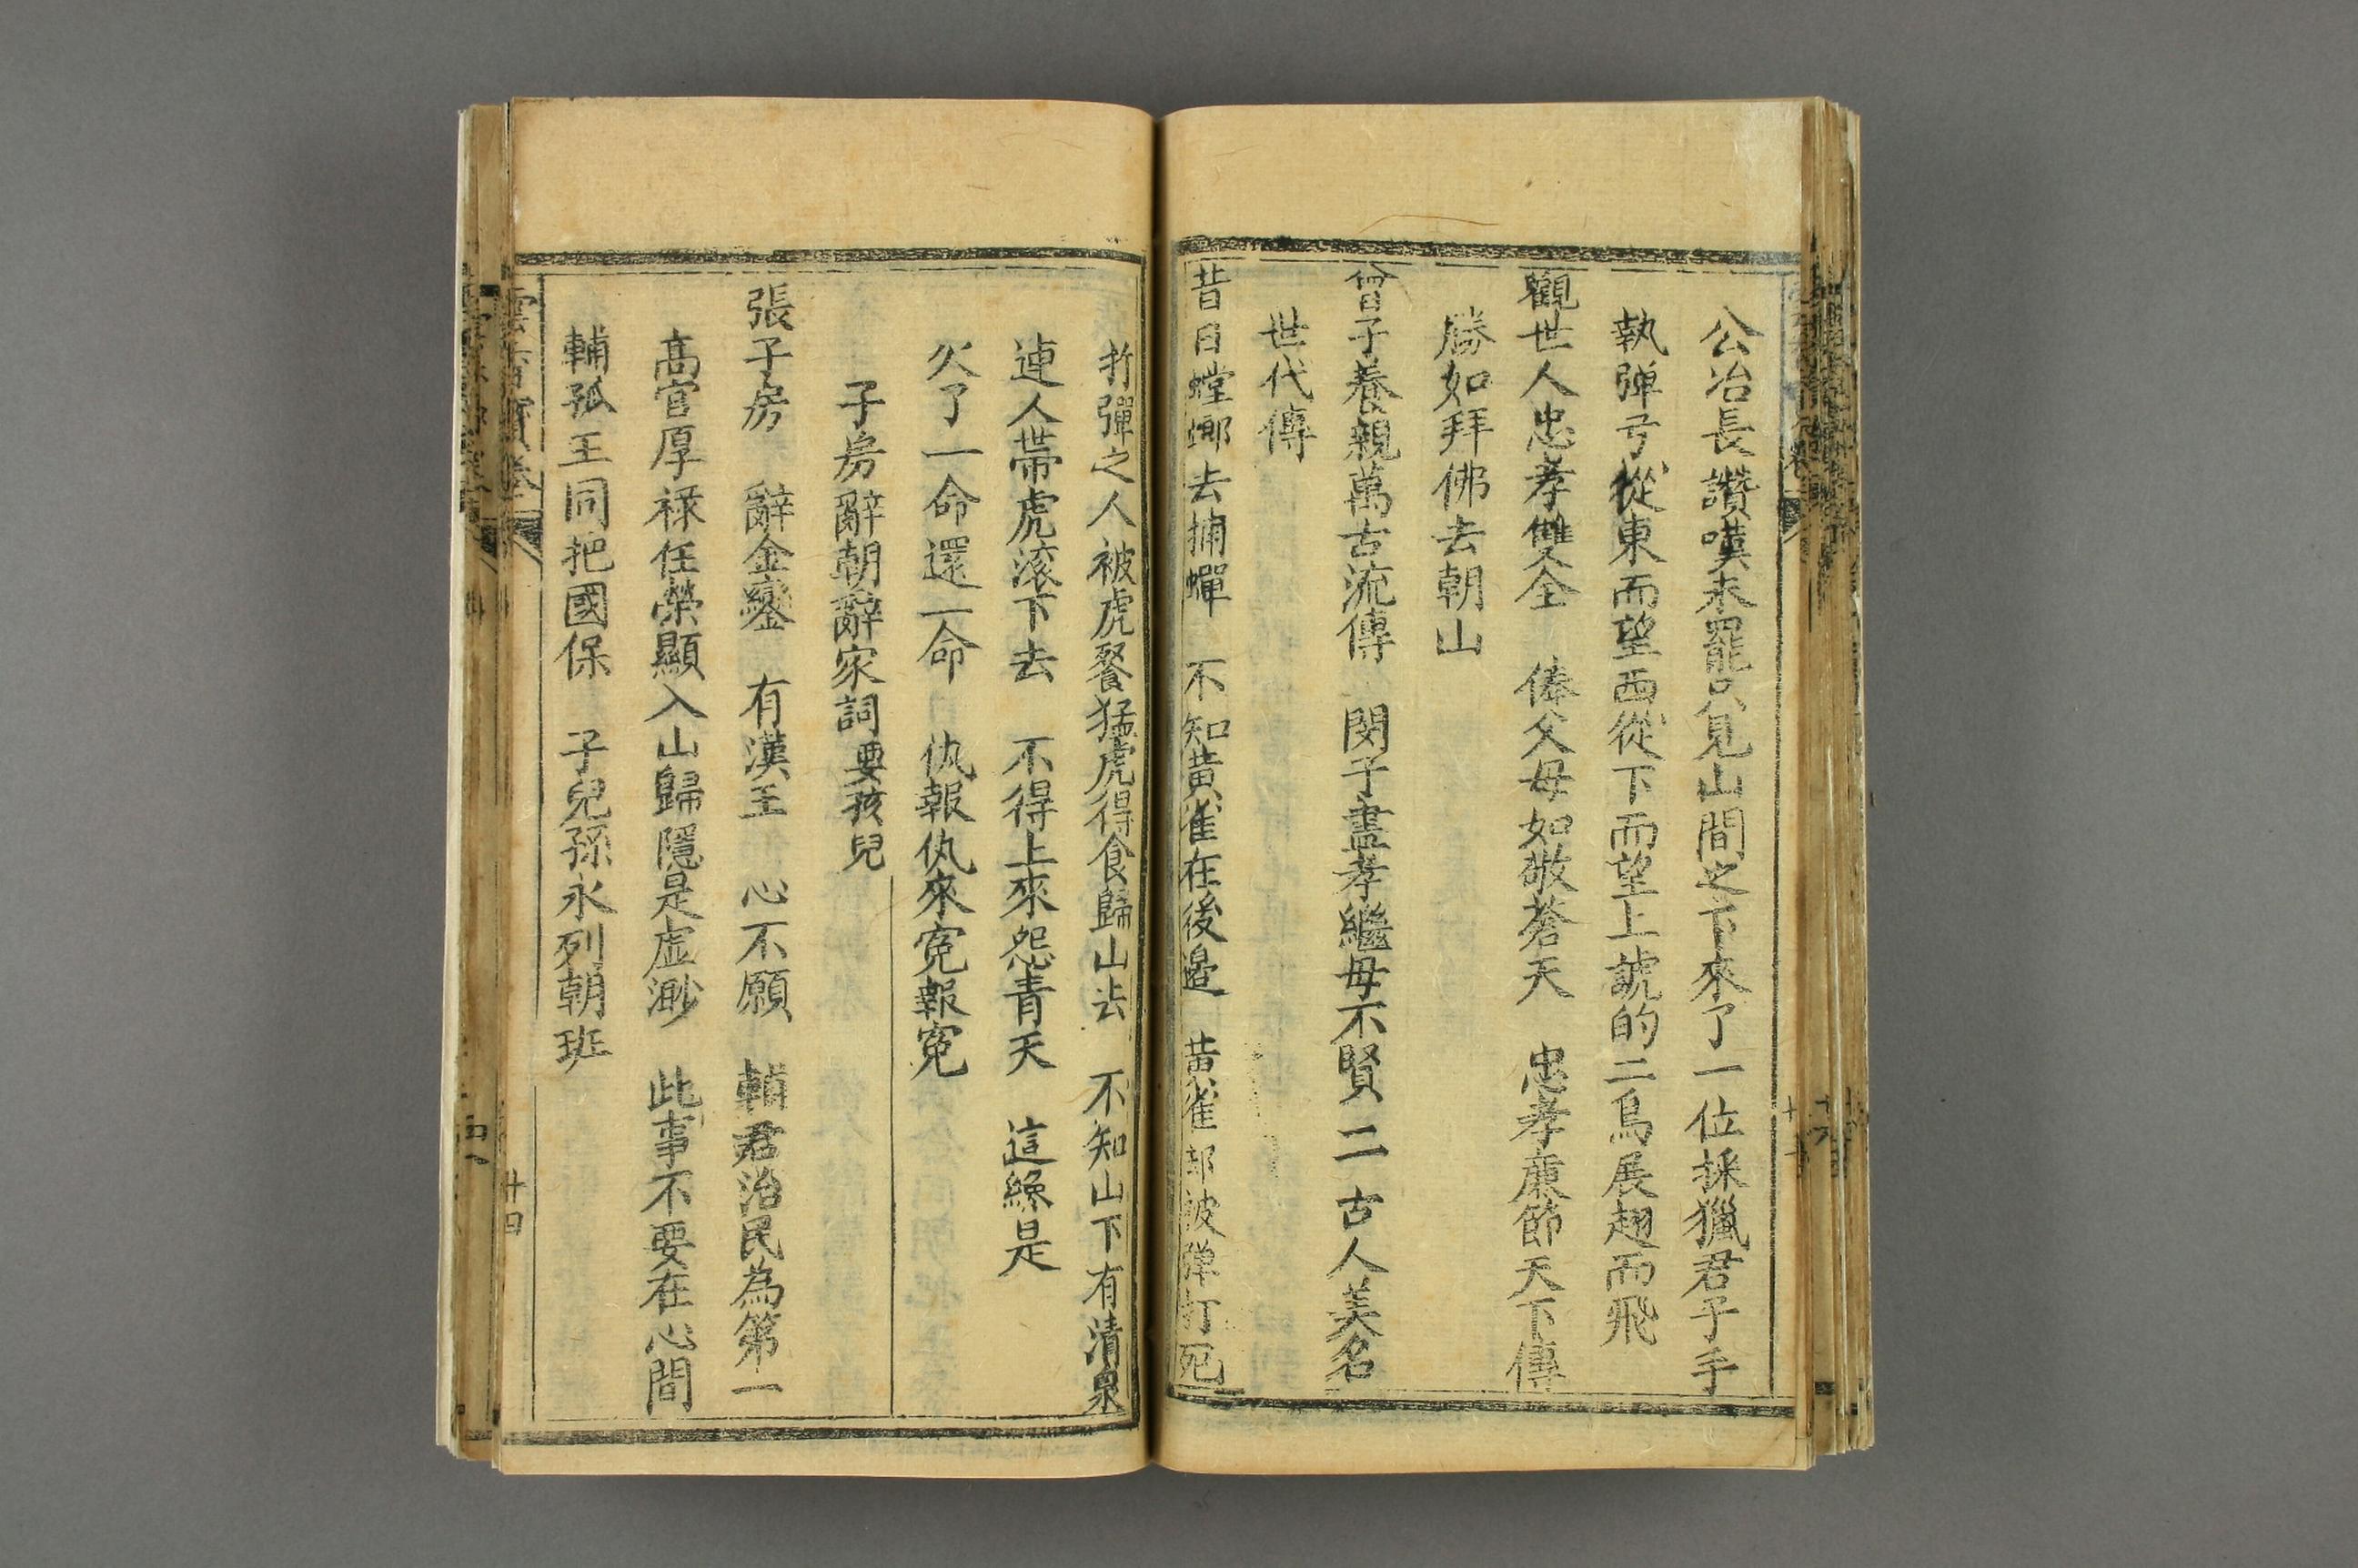 公冶長讚嘆未罷只見山間之下來了一位採獵君子手
執弹弓從東而望西從下而望上諕的二鳥展翅而飛
觀世人忠孝雙全 俸父母如敬蒼天 忠孝廉節天下傳
勝如拜佛去朝山
曾子養親萬古流傳 閔子盡孝繼母不賢 二古人美名
世代傳
昔日螳螂去捕蟬 不知黄雀在後邉 黄雀却被弹打死
折彈之人被虎餐猛虎得食歸山去 不知山下有清泉
連人帶虎滚下去 不得上來怨青天 這纔是
欠了一命還一命 仇報仇來寃報寃
子房辭朝辭家詞要孩兒
張子房 辭金鑾 有漢王 心不願 輔君治民為第一
高官厚禄任榮顯入山歸隱是虚渺 此事不要在心間
輔孤王同把國保 子兒孫永列朝班
十四